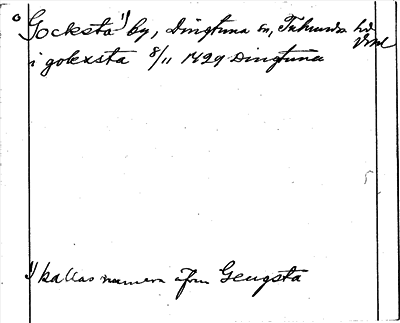 Gocksta 1) by, Dingtuna sn, Tuhundra hd
Vsml
i golexsta 8/11 1429 Dingtuna
1) kallas numera äfven Gengsta